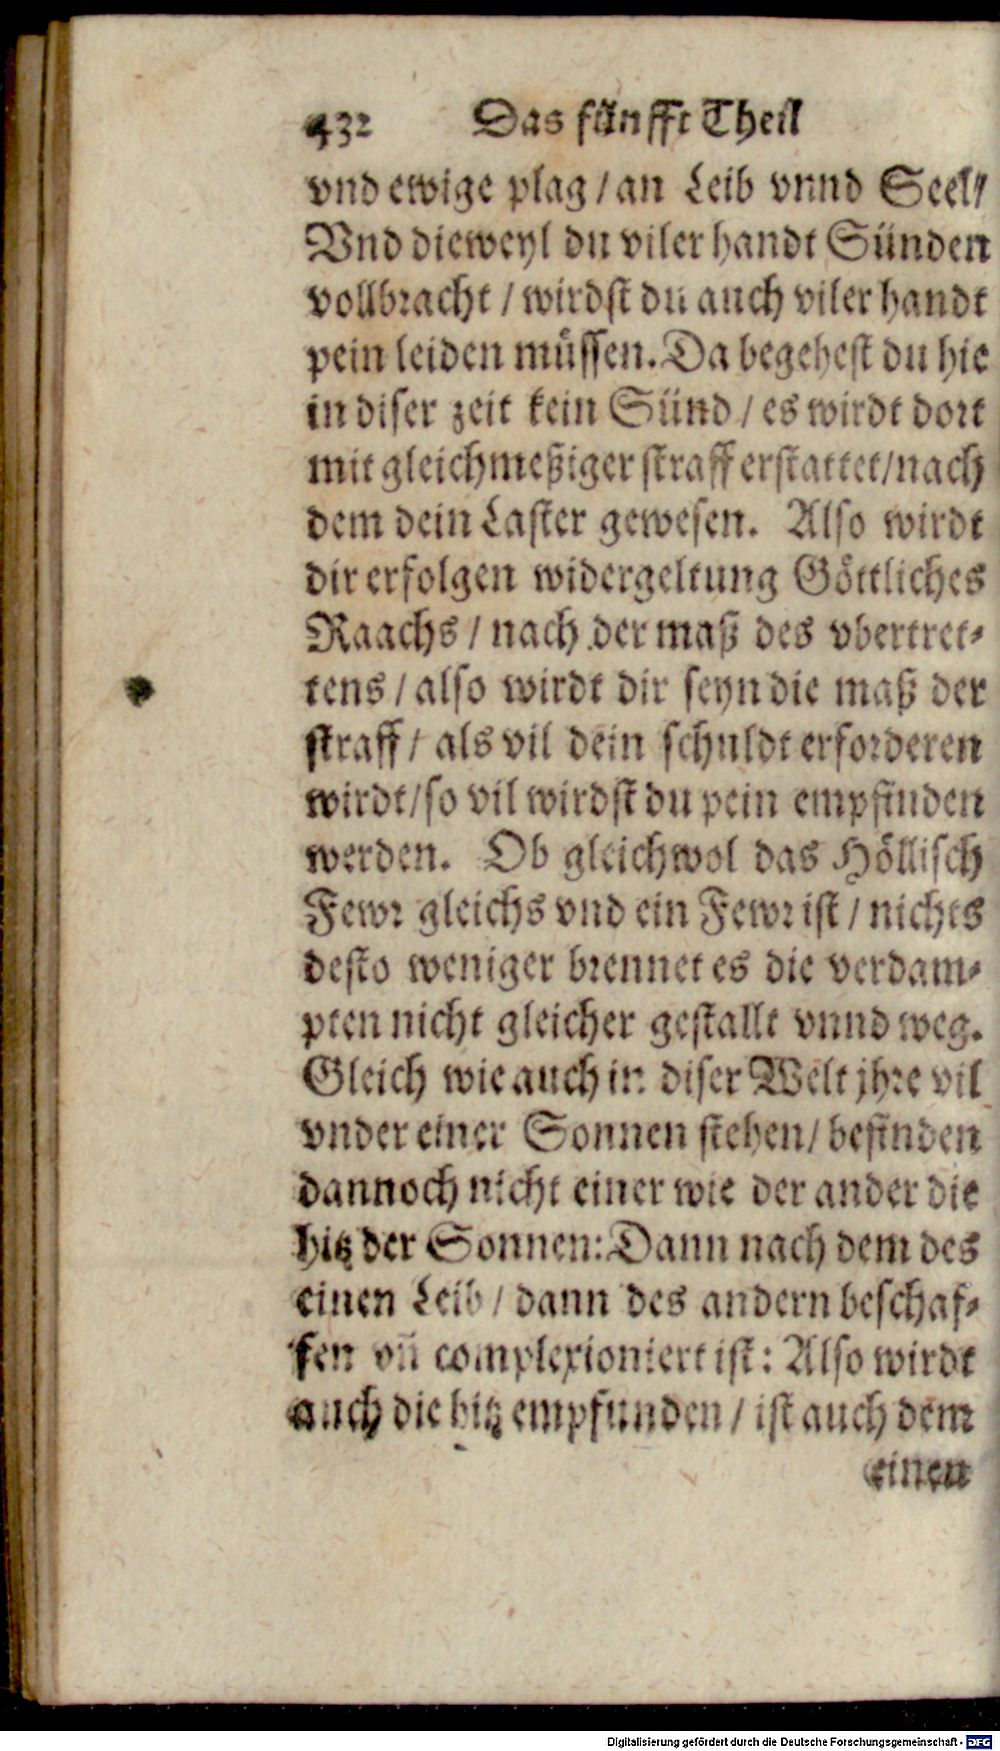 432 Das fünfft Theil
vnd ewige plag / an Leib vnnd Seel /
Vnd dieweyl du viler handt Sünden
vollbracht / wirdst du auch viler handt
pein leiden müssen. Da begehest du hie
in diser zeit kein Sünd / es wirdt dort
mit gleichmeßiger straff erstattet / nach
dem dein Laster gewesen. Also wirdt
dir erfolgen widergeltung Göttliches
Raachs / nach der maß des vbertret-
tens / also wirdt dir seyn die maß der
straff / als vil dein schuldt erforderen
wirdt / so vil wirdst du pein empfinden
werden. Ob gleichwol das Höllisch
Fewr gleichs vnd ein Fewr ist / nichts
desto weniger brennet es die verdam-
pten nicht gleicher gestallt vnnd weg.
Gleich wie auch in diser Welt jhre vil
vnder einer Sonnen stehen / befinden
dannoch nicht einer wie der ander die
hitz der Sonnen: Dann nach dem des
einen Leib / dann des andern beschaf-
fen vñ complexioniert ist: Also wirdt
auch die hitz empfunden / ist auch dem
einen
Digitalisierung gefördert durch die Deutsche Forschungsgemeinschaft - DFG